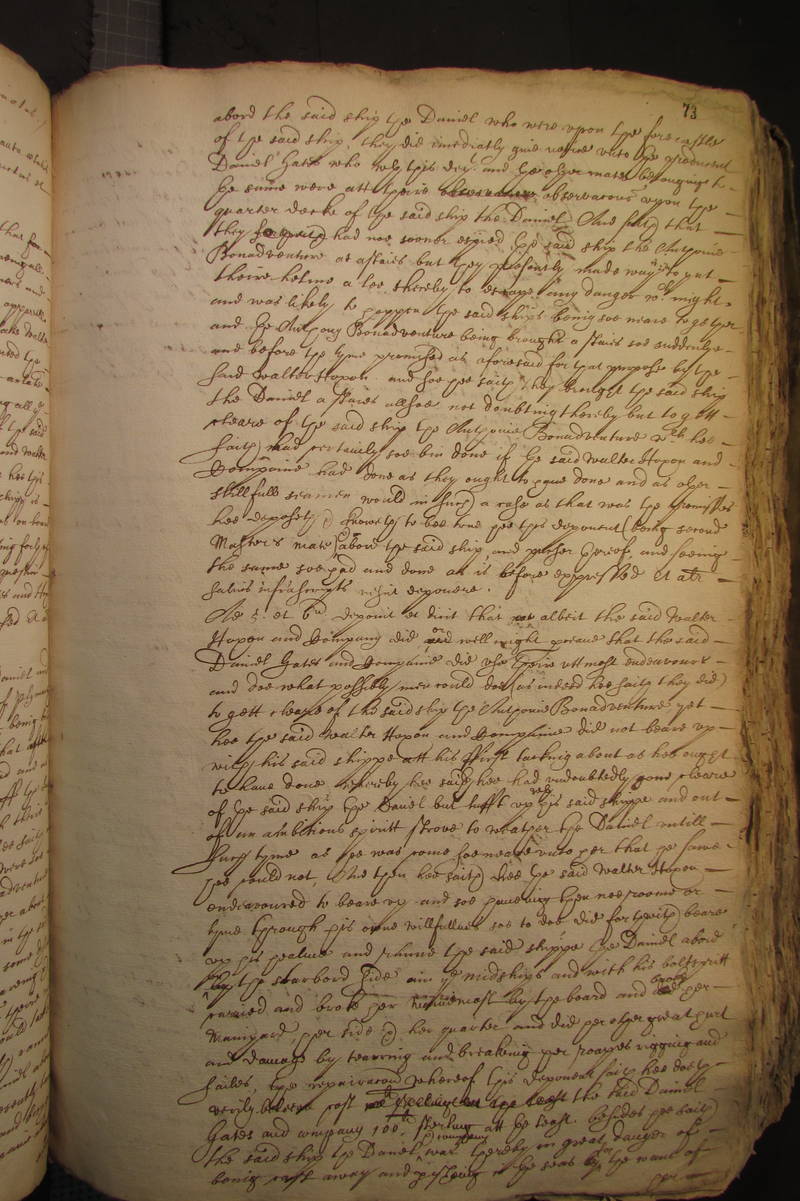 73
abord the said ship the Daniel who were vpon the forecastle
of the said ship, they did imediatly giue notice vnto the producent
Daniel Gates who wth this dept and the other mates belonging to
the same were att theire observacons vpon the
quarter decke of the said ship the Daniel, And saith that
they had noe sooner espied the said ship the Anthonie
Bonadventure at staies but they presently made way to put
theire helme a lee thereby to escape any danger wch might
and was likely to happen the said shipps being soe neare together
and the Anthony Bonadventure being brought a staies soe suddenlye
and before the tyme promised as aforesaid for that purpose by the
said Walter Hopon and soe hee saith they brought the said ship
the Daniel a staies allsoe not doubting thereby but to gett
cleare of the said ship the Anthonie Bonadventure wch hee
saith had certainely soe bin done if the said Walter Hopon and
Companie had done as they ought to haue done and as other
skillfull seamen would in such a case as that was the premisses
hee deposeth & knoweth to bee true hee this deponent (being second
Masters mate) abord the said ship, and present and seeing
the same soe had and done as is before expressed et aliter
salvis infrascriptis nescit deponere.
Ad 5. et 6um deponit et dicit that albeit the said Walter
Hopon and Company did and well might perceaue that the said
Daniel Gates and Companie did vse theire vttmost endeavours
and doe what possibly men could doe (as indeed hee saith they did)
to gett cleare of the said ship the Anthonie Bonadventure yet
hee the said Walter Hopon and Companie did not beare vp
with his said shippe att his first tacking about as hee ought
to haue done whereby hee saith hee had vndoubtedly gone cleare
of the said ship the Daniel but lufft vp with his said shippe and out
of an ambitious spiritt stroue to weather the Daniel vntill
such tyme as hee was come soe neare vnto her that he sawe
hee could not, And then hee saith hee the said Walter Hopon
endeavoured to beare vp and soe haueing then noe roome or
tyme through his owne willfullnes soe to doe did forthwith beare
vp his healme and runne the said shippe the Daniel abord
by the starbord side in the midships and with his boltspritt
carried and broke her by the board and broke her
Mainyard, her side & her quarter and did her other great hurt
and damage by tearring and breaking her roapes rigging and
sailes, the reparacon whereof this deponent saith hee doeth
verily beleeve cost the said Daniel
Gates and company 100li sterling att the least. besides hee saith
the said ship the Daniel & company was thereby in great danger of
being cast away and perishing in the seas by the want of
her